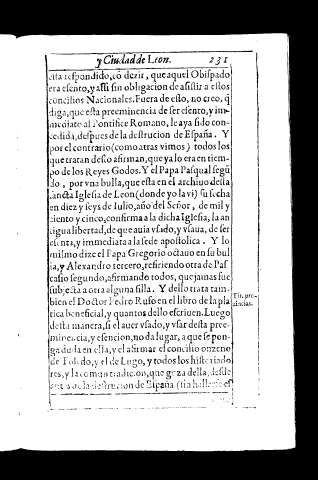 y Ciudad de Leon. 231
esta respondido, cõ dezir, que aquel Obispado
era esento, y assi sin obligacion de assistir a estos
concilios Nacionales. Fuera de esto, no creo, q̃
diga, que esta preeminencia de ser esento, y im-
mediato al Pontifice Romano, le aya sido con-
cedida, despues de la destrucion de España. Y
por el contrario (como atras vimos) todos los
que tratan desto afirman, que ya lo era en tiem-
po de los Reyes Godos. Y el Papa Pasqual segũ
do, por vna bulla, que està en el archiuo desta
sancta Iglesia de Leon (donde yo la vi) su fecha
en diez y seys de Iulio, año del Señor, de mil y
ciento y cinco, confirma a la dicha Iglesia, la an
tigua libertad, de que auia vsado, y vsaua, de ser
esenta, y immediata a la sede apostolica. Y lo
mismo dize el Papa Gregorio octauo en su bu
la, y Alexandro tercero, refiriendo otra de Pas
casio segundo, afirmando todos, que jamas fue
subjecta a otra alguna silla. Y dello trata tam-
bien el Doctor Pedro Ruso en el libro de la pla
tica beneficial, y quantos dello escriuen. Luego
Tit. pro-
uincias.
desta manera, si el auer vsado, y vsar desta pree-
minencia, y esencion, no da lugar, a que se pon-
ga duda en ella, y el afirmar el concilio onzeno
de Toledo, y el de Lugo, y todos los historiado
res, y la comun tradicion, que goza della, desde
antes de la destrucion de España (sin hallarse es